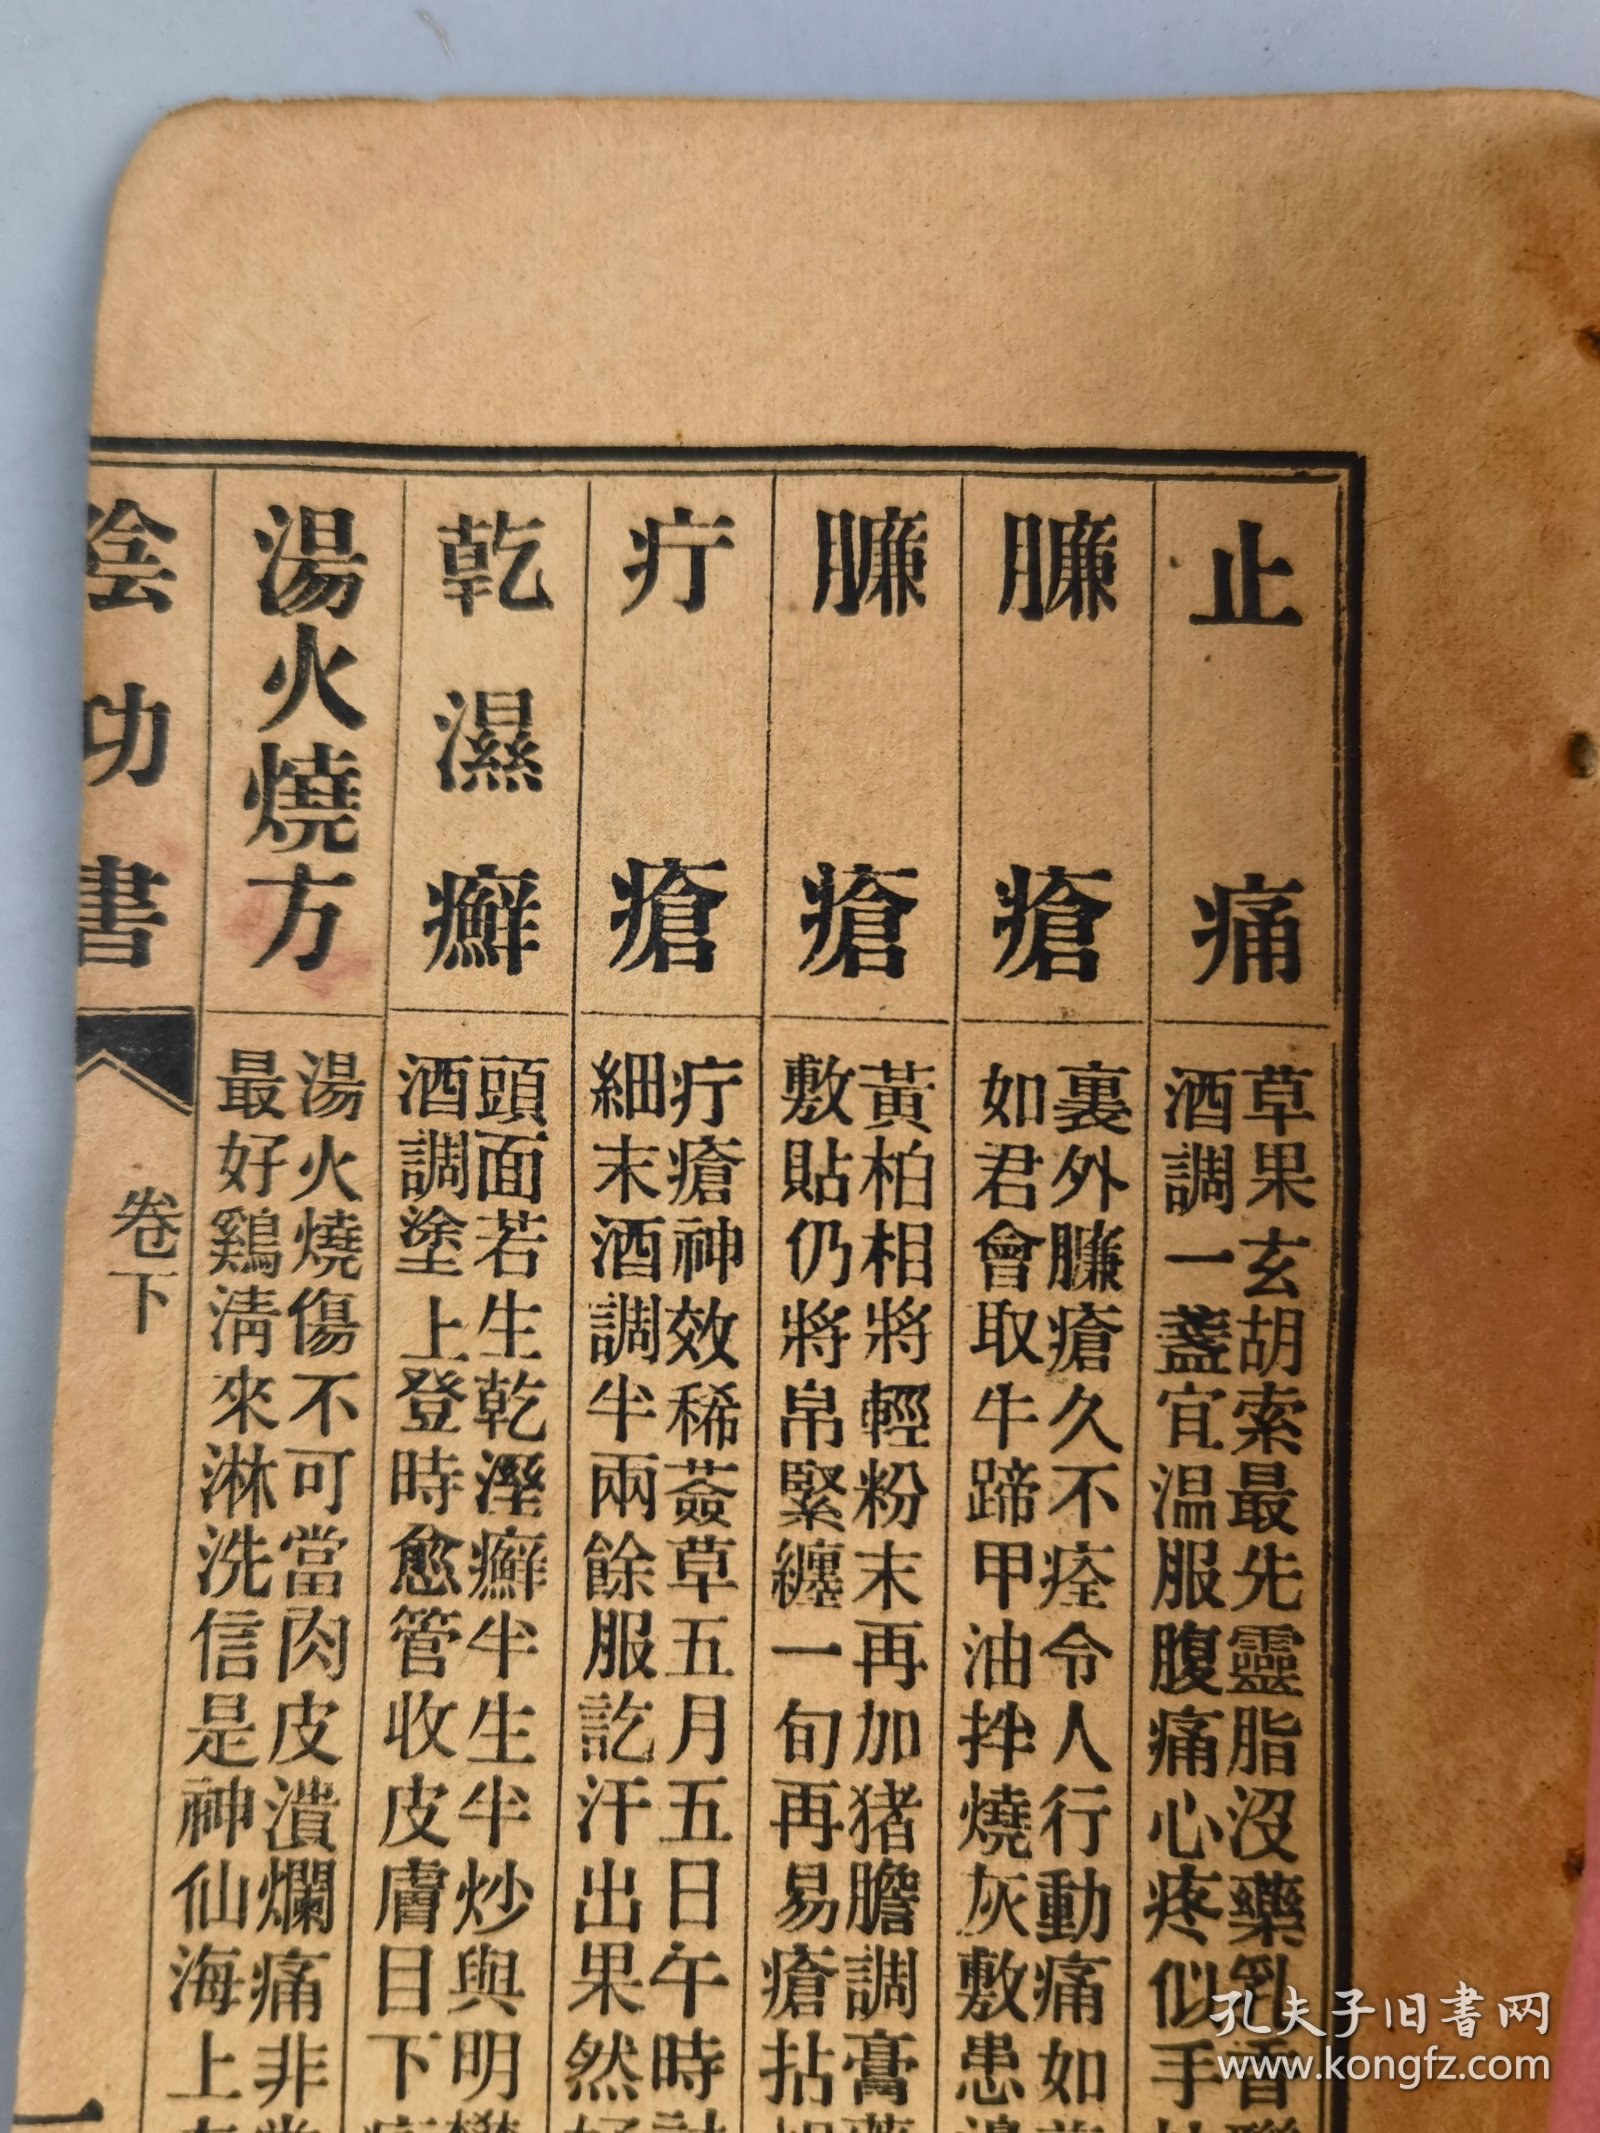 止痛
草果玄胡索最先靈脂沒藥乳香
酒調一盞宜温服腹痛心疼似手
臁瘡
裏外臁瘡久不痊令人行動痛如
如君會取牛蹄甲油拌燒灰敷患邊
臁瘡
黃柏相將輕粉末再加猪膽調膏藥
敷貼仍將帛緊纏一旬再易瘡拈
疔瘡
疔瘡神效稀薟草五月五日午時
細末酒調半兩餘服訖汗出果然好
乾濕癬
頭面若生乾溼癬半生半炒與明礬
酒調塗上登時愈管收皮膚目下
湯火燒方
湯火燒傷不可當肉皮潰爛痛非常
最好鷄淸來淋洗信是神仙海上
陰功書
卷下
一
孔夫子旧書网
www.kongfz.com